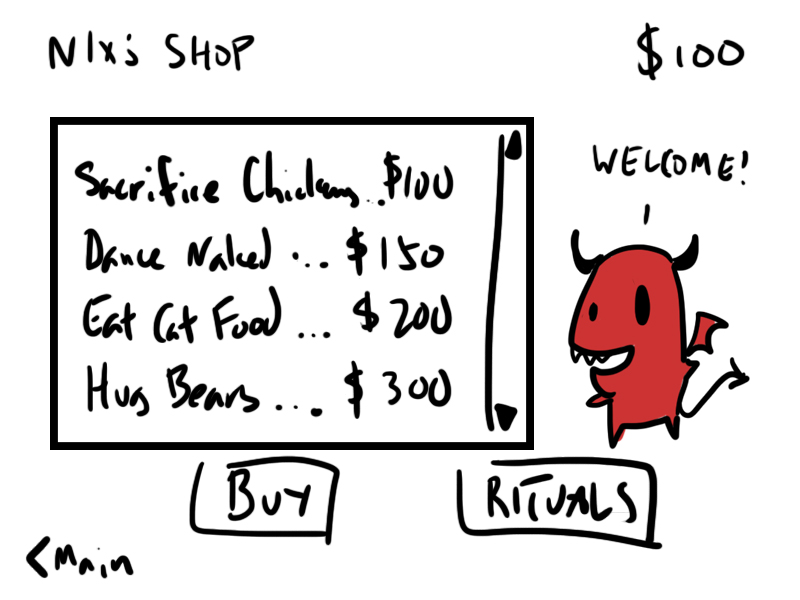 Nix's SHOP
$100
WELCOME!
Sacrifice Chickens...$100
Dance Naked ... $150
Eat Cat Food ... $200
Hug Bears ... $300
BUY
RITUALS
<Main